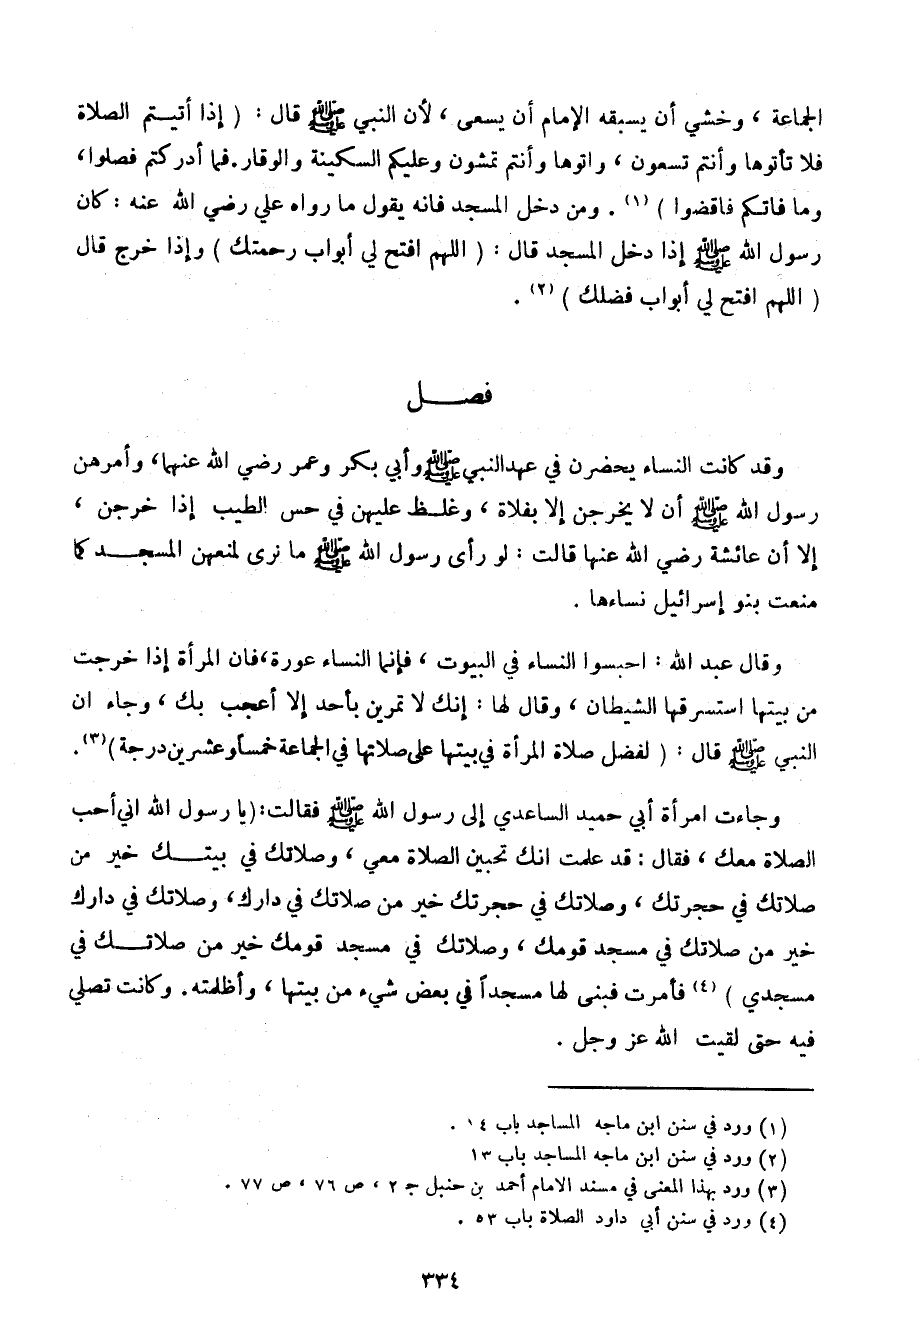 الجماعة ، وخشي أن يسبقه الإمام أن يسعى ، لأن النبي ﷺ قال : ( إذا أتيتم الصلاة
فلا تأتوها وأنتم تسعون ، واتوها وأنتم تمشون وعليكم السكينة والوقار . فما أدركتم فصلوا ،
وما فاتكم فاقضوا ) (١) . ومن دخل المسجد فانه يقول ما رواه علي رضي الله عنه : كان
رسول الله ﷺ إذا دخل المسجد قال : ( اللهم افتح لي أبواب رحمتك ) وإذا خرج قال
( اللهم افتح لي أبواب فضلك ) (٢) .
فصــــل
وقد كانت النساء يحضرن في عهد النبي ﷺ وأبي بكر وعمر رضي الله عنهما ، وأمرهن
رسول الله ﷺ أن لا يخرجن إلا بفلاة ، وغلــظ عليهن في حس الطيب إذا خرجن ،
إلا أن عائشة رضي الله عنها قالت : لو رأى رسول الله ﷺ ما نرى لمنعهن المسجــــد كما
منعت بنو إسرائيل نساءها .
وقال عبد الله : احبسوا النساء في البيوت ، فإنما النساء عورة ، فان المرأة إذا خرجت
من بيتها استسرقها الشيطان ، وقال لها : إنك لا تمرين بأحد إلا أعجب بك ، وجاء ان
النبي ﷺ قال : ( لفضل صلاة المرأة في بيتها على صلاتها في الجماعة خمسا وعشرين درجة ) (٣) .
وجاءت امرأة أبي حميد الساعدي إلى رسول الله ﷺ فقالت : ( يا رسول الله اني أحب
الصلاة معك ، فقال : قد علمت انك تحبين الصلاة معي ، وصلاتك في بيتــــك خير من
صلاتك في حجرتك ، وصلاتك في حجرتك خير من صلاتك في دارك ، وصلاتك في دارك
خير من صلاتك في مسجد قومك ، وصلاتك في مسجد قومك خير من صلاتــــك في
مسجدي ) (٤) فأمرت فبنى لها مسجداً في بعض شيء من بيتها ، وأظلمته . وكانت تصلي
فيه حتى لقيت الله عز وجل .
(١) ورد في سنن ابن ماجه المساجد باب ١٤ .
(٢) ورد في سنن ابن ماجه المساجد باب ١٣
(٣) ورد بهذا المعنى في مسند الامام أحمد بن حنبل ج ٢ ، ص ٧٦ ، ص ٧٧ .
(٤) ورد في سنن أبي داود الصلاة باب ٥٣ .
٣٣٤